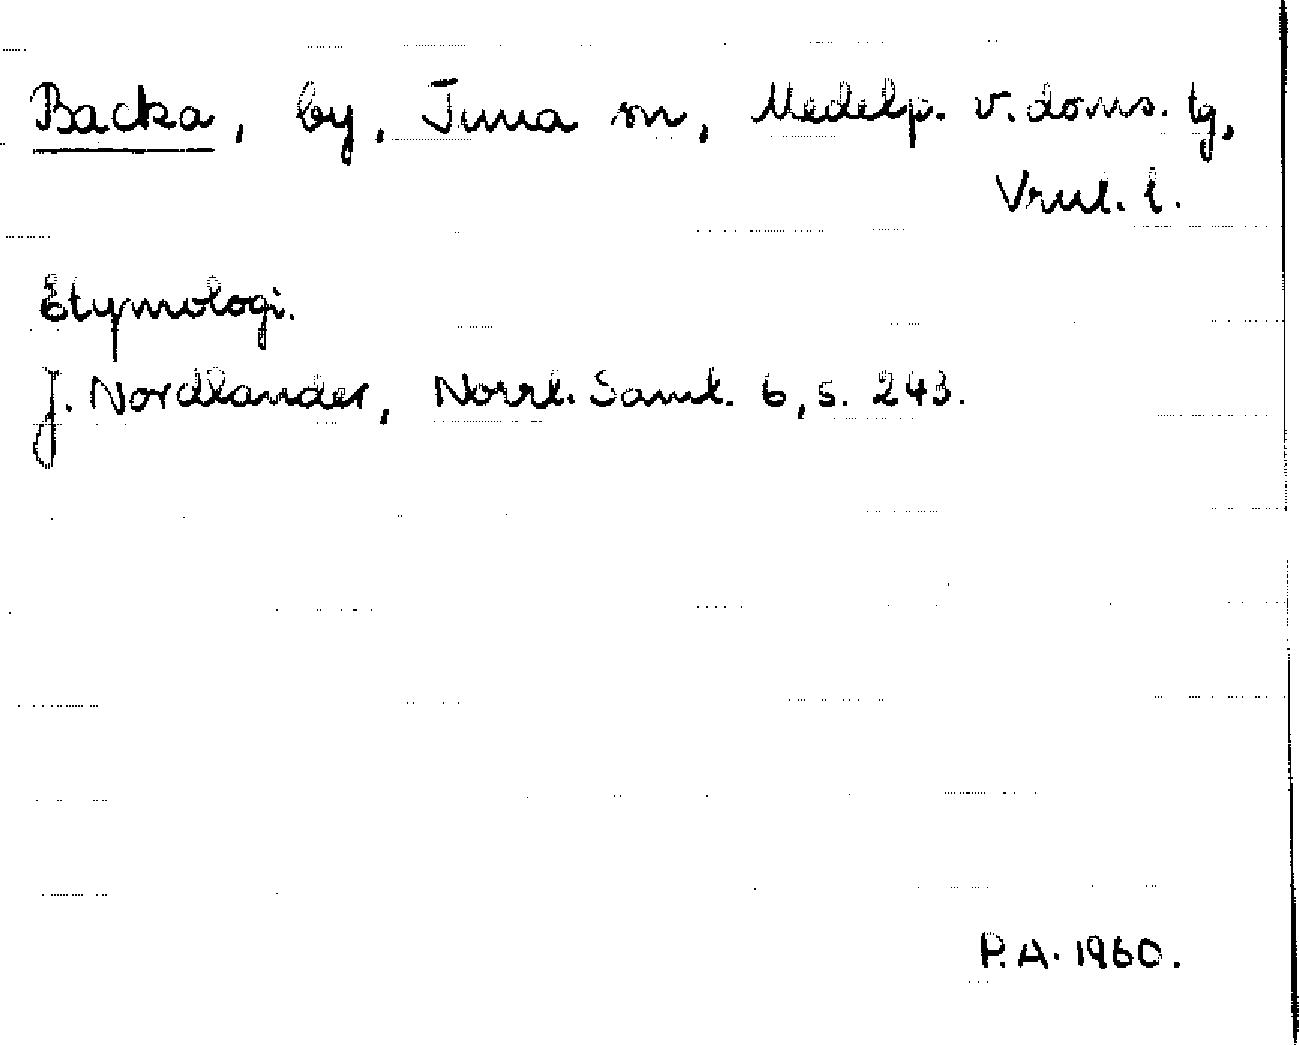 Backa, by, Tuna sn, Medelp. v. doms. tg,
Vrnl. l.
Etymologi.
J. Nordlander, Norrl. Saml. 6, s. 243.
P.A. 1960.